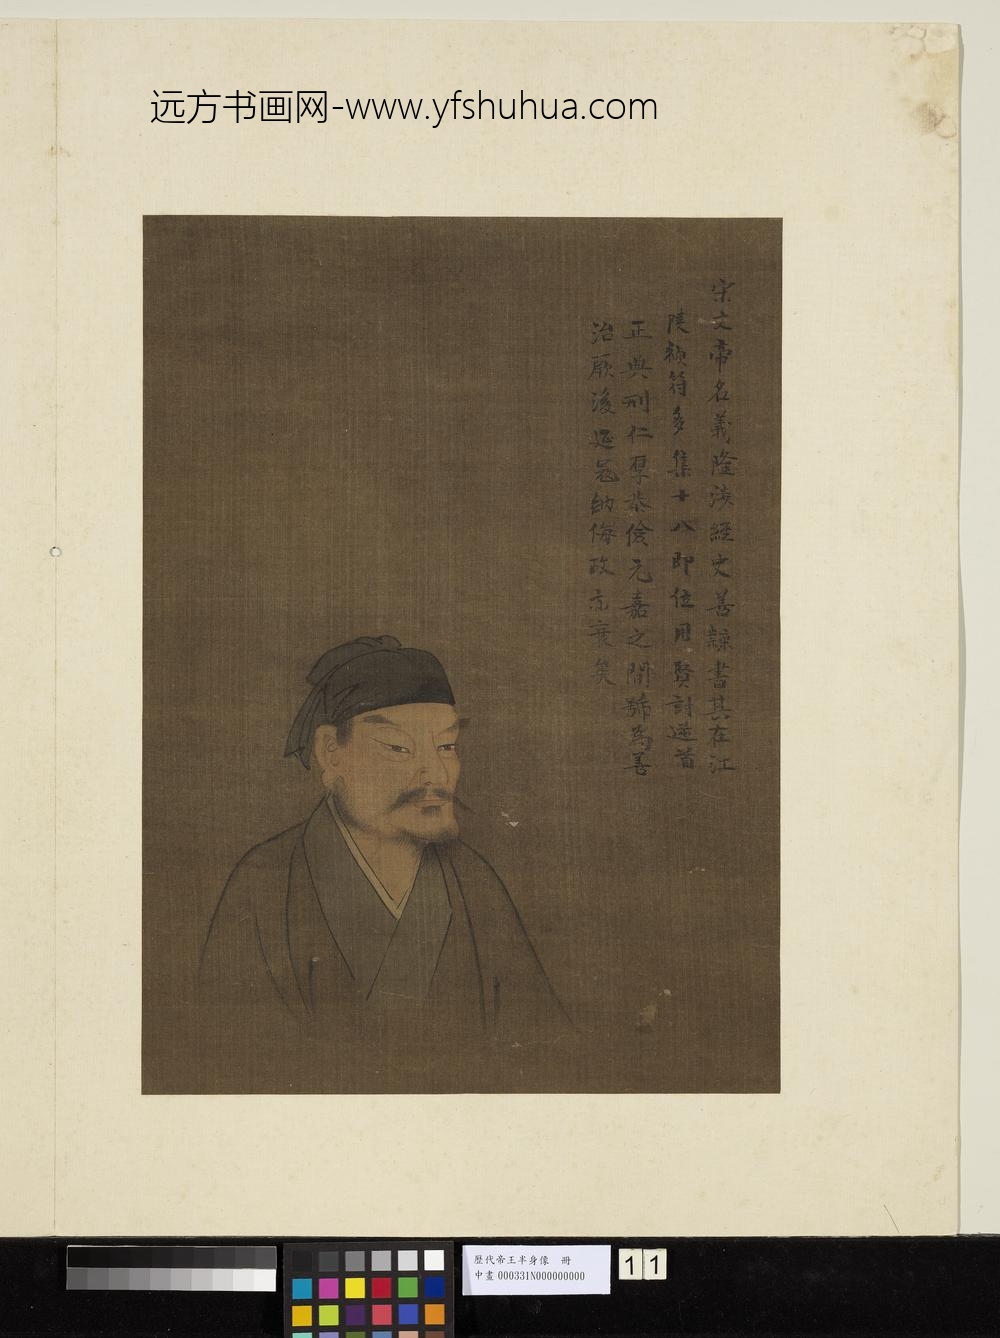 远方书画网-www.yfshuhua.com
宋文帝名義隆涉經史善隸書其在江
陵禎符多集十八即位用賢討逆首
正典刑仁厚恭儉元嘉之間號為善
治厥後延寇納侮政亦衰矣
歷代帝王半身像 冊
中畫 000331N000000000
11